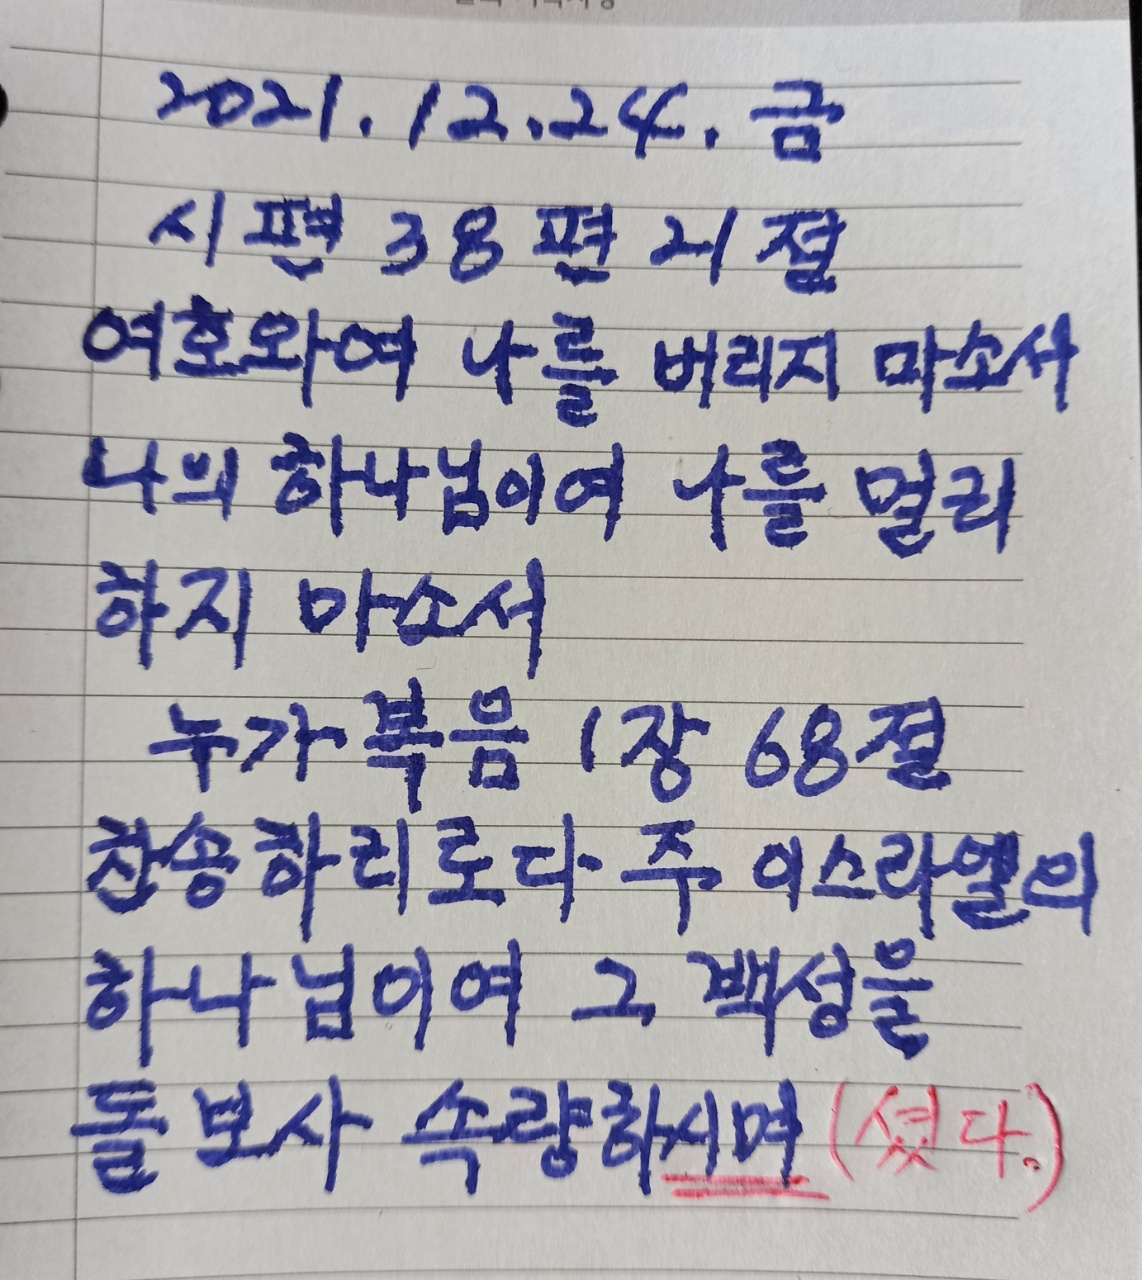 2021.12.24. 금
시편 38편 21절
여호와여 나를 버리지 마소서
나의 하나님이여 나를 멀리
하지 마소서
누가복음 1장 68절
찬송하리로다 주 이스라엘의
하나님이여 그 백성을
돌보사 속량하시며 (셨다.)